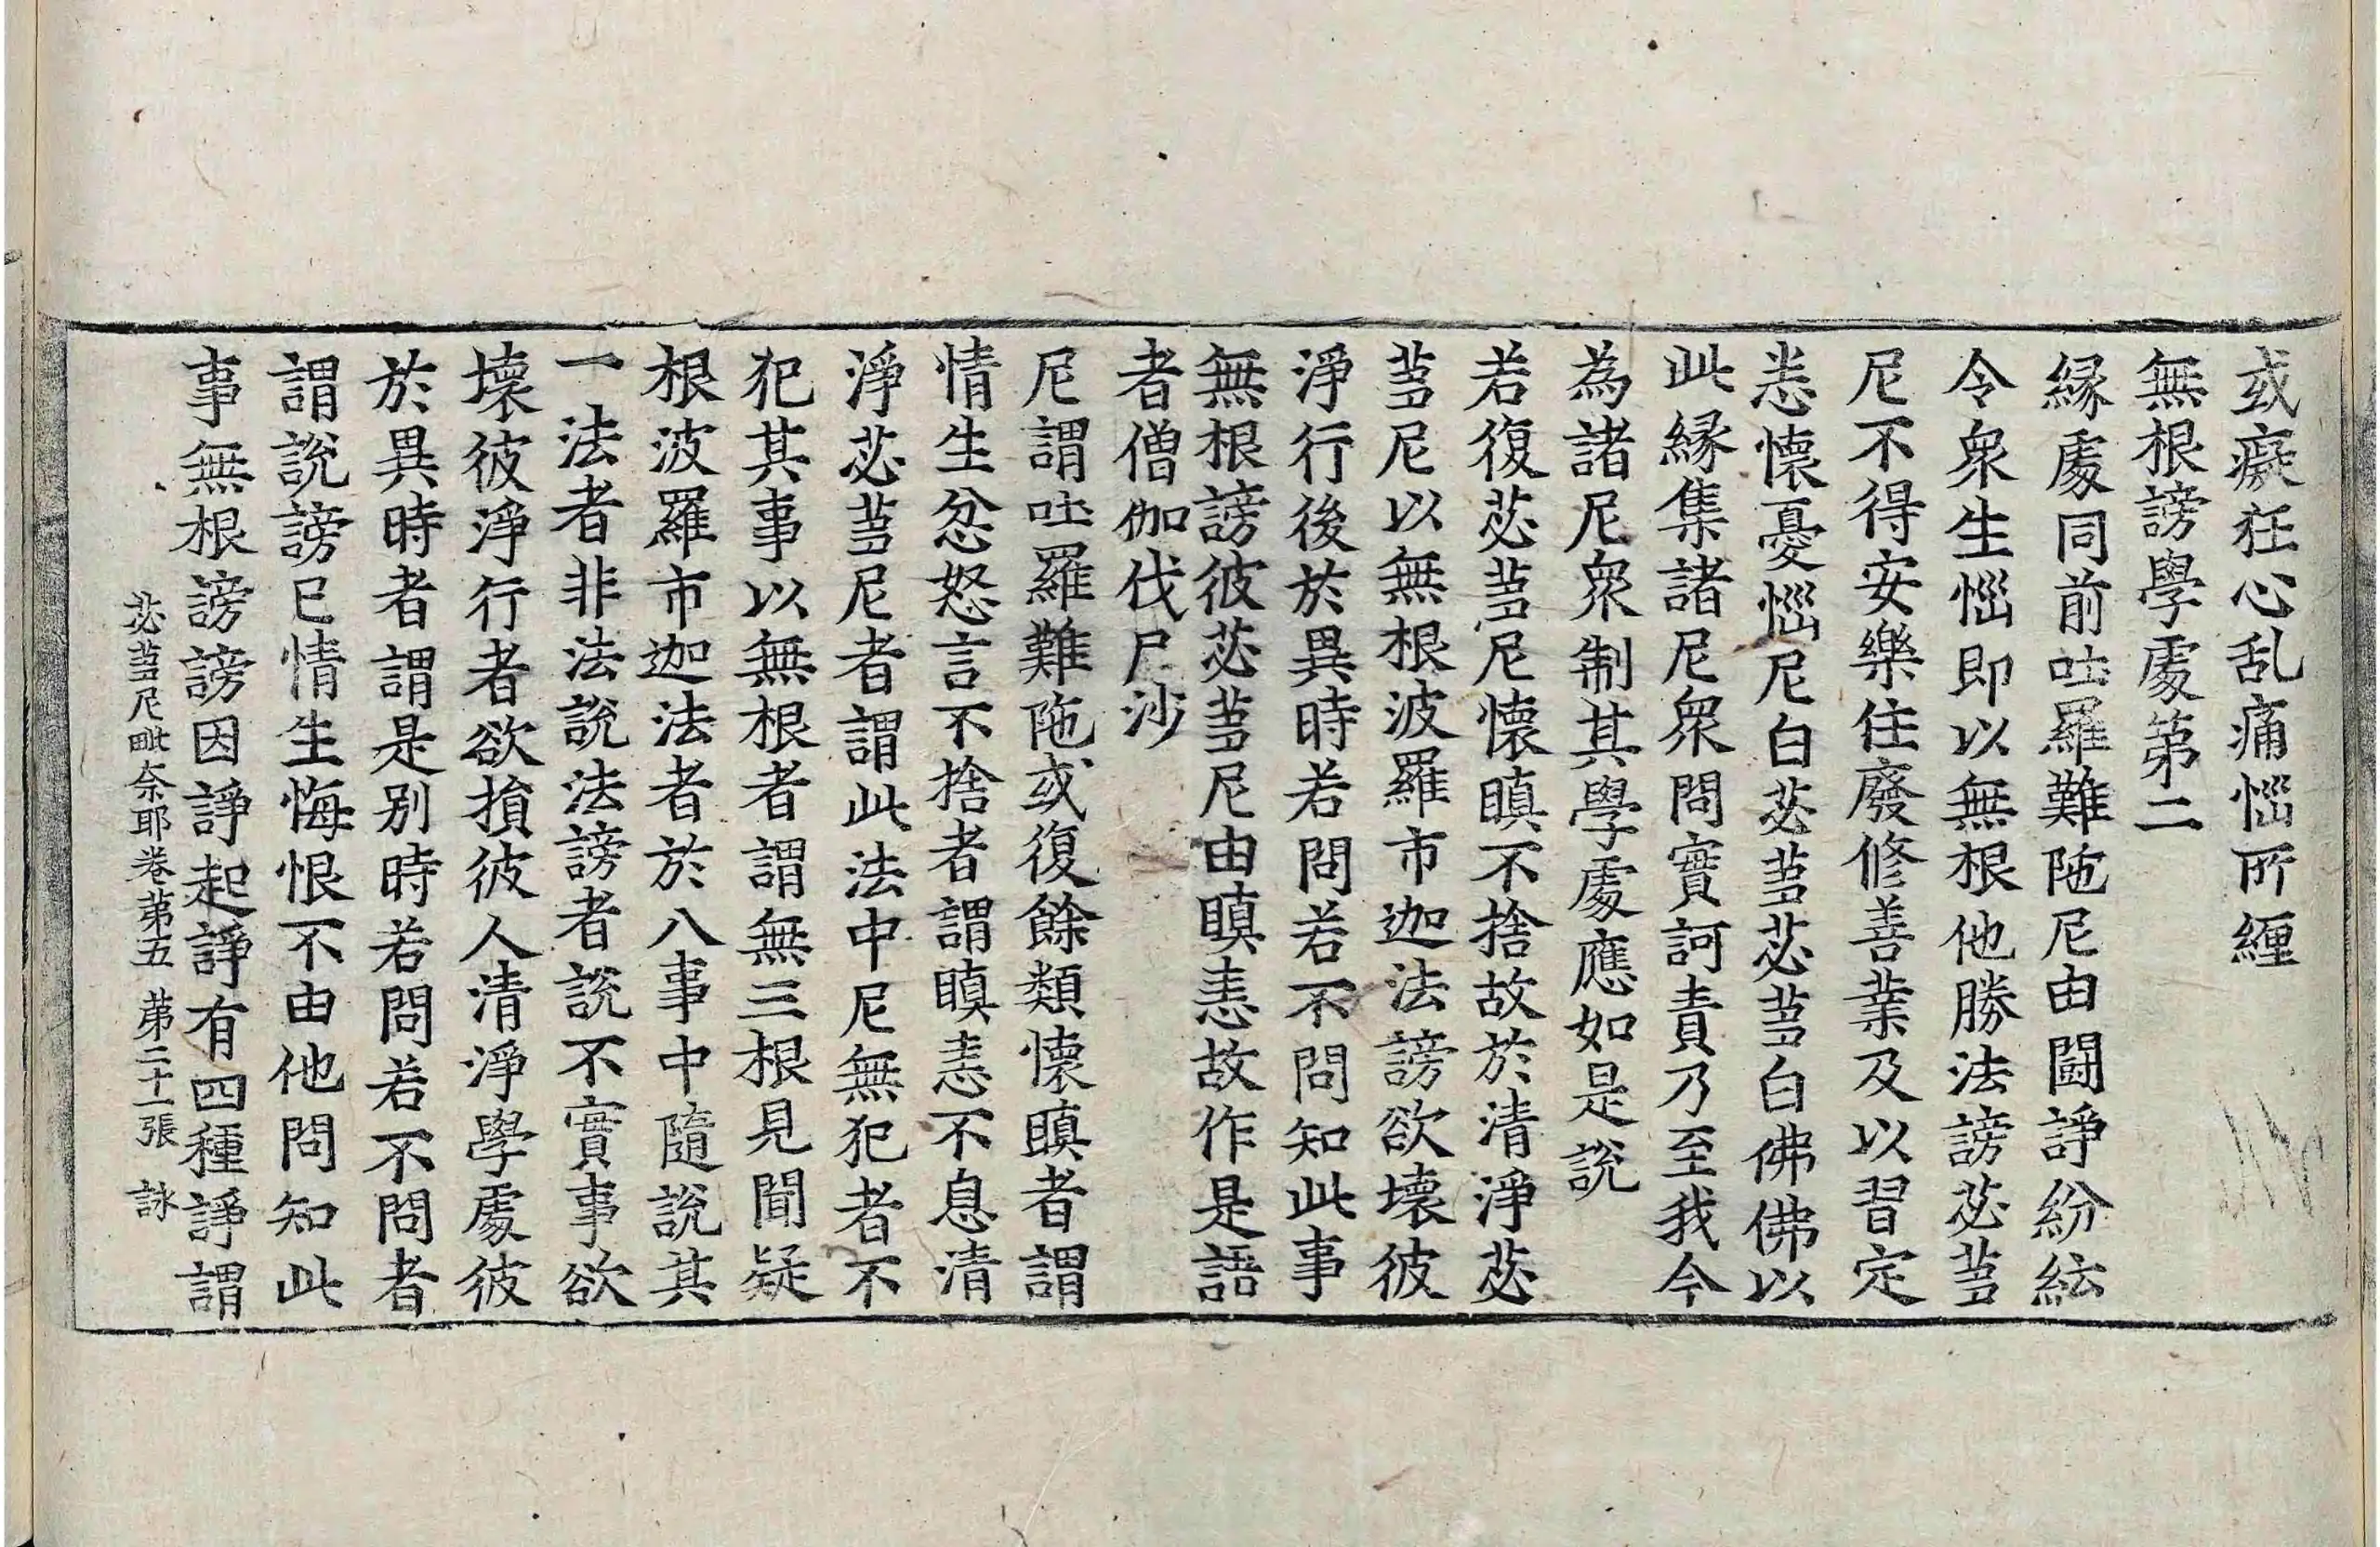 或癡狂心乱痛惱所纏
無根謗學處第二
緣處同前吐羅難陁尼由鬪諍紛紜
令衆生惱即以無根他勝法謗苾蒭
尼不得安樂住廢修善業及以習定
恚懷憂惱尼白苾蒭苾蒭白佛佛以
此緣集諸尼衆問實訶責乃至我今
為諸尼衆制其學處應如是說
若復苾蒭尼懷瞋不捨故於清淨苾
蒭尼以無根波羅市迦法謗欲壞彼
淨行後於異時若問若不問知此事
無根謗彼苾蒭尼由瞋恚故作是語
者僧伽伐尸沙
尼謂吐羅難陁或復餘類懷瞋者謂
情生忿怒言不捨者謂瞋恚不息清
淨苾蒭尼者謂此法中尼無犯者不
犯其事以無根者謂無三根見聞疑
根波羅市迦法者於八事中隨說其
一法者非法說法謗者說不實事欲
壞彼淨行者欲損彼人清淨學處彼
於異時者謂是別時若問若不問者
謂說謗已情生悔恨不由他問知此
事無根謗謗因諍起諍有四種諍謂
苾蒭尼毗奈耶卷第五 第二十一張 詠